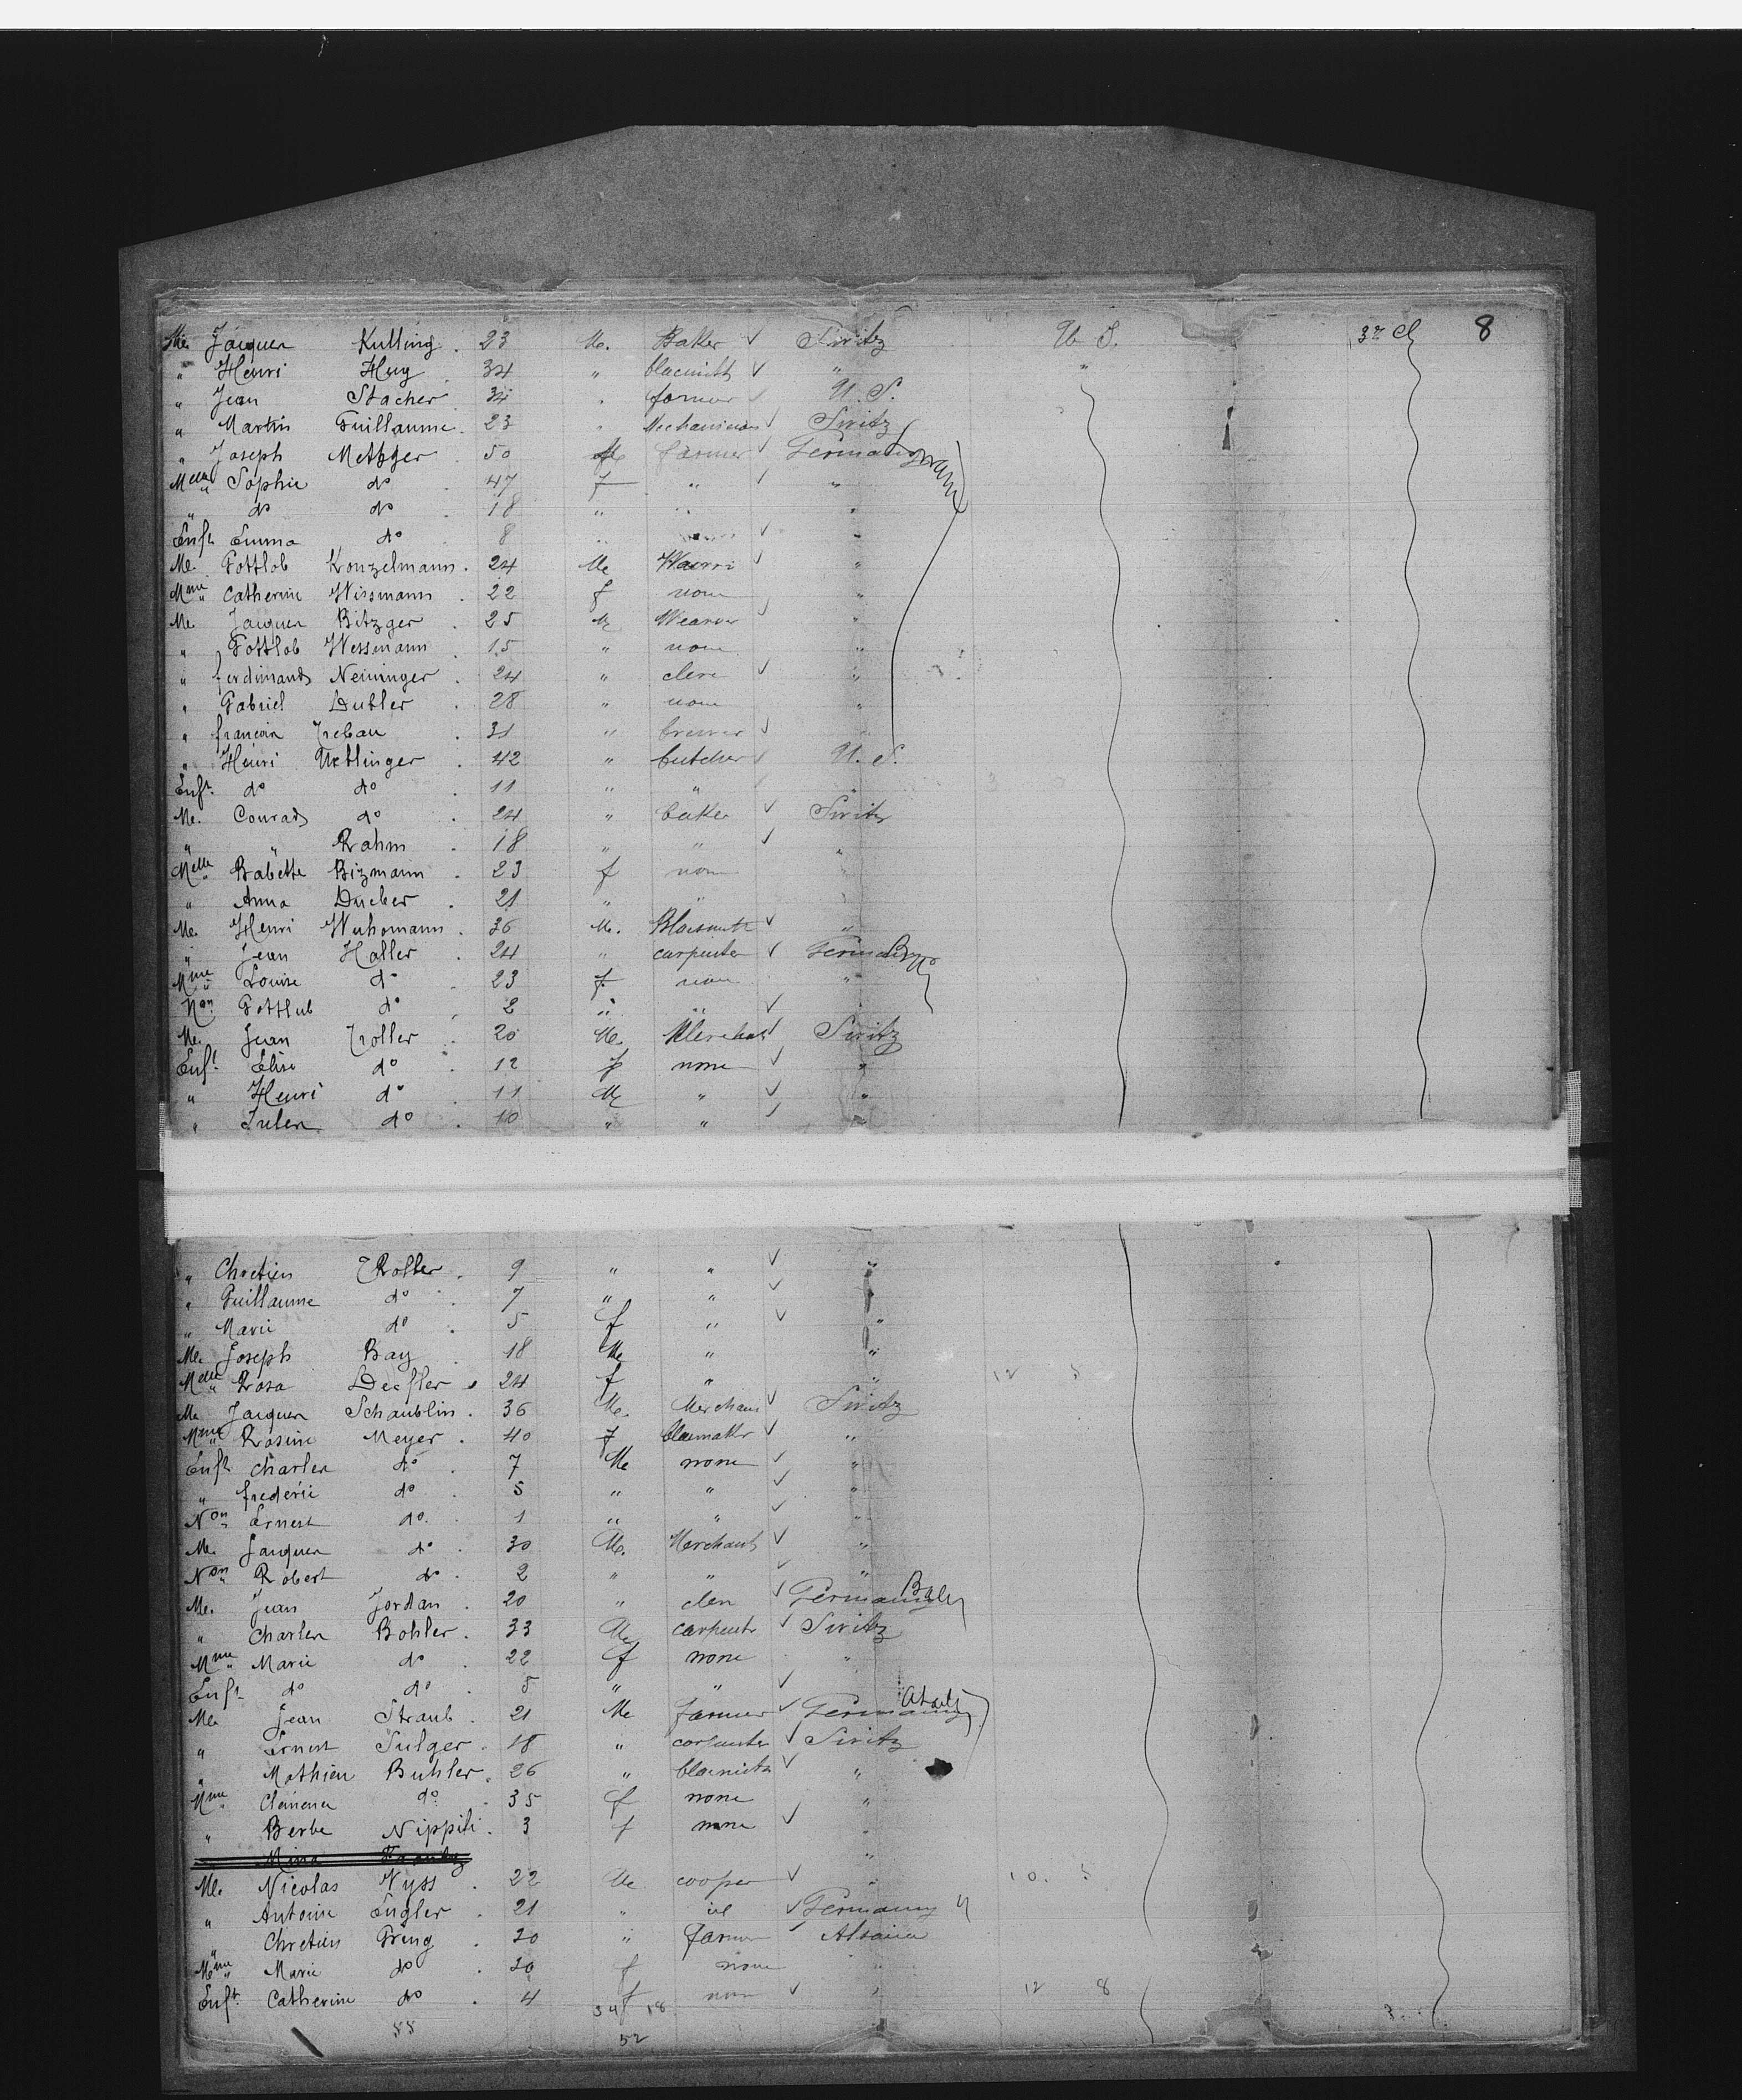 Mr. Jacques Kulling . 23 M. Baker ✓ Switz U. S. 3rd Cl 8
" Henri Hug . 34 " blacmith ✓ " "
" Jean Stacher 34 " farmer ✓ U. S.
" Martin Guillaume . 23 " Mechanician ✓ Switz
" Joseph Metzger . 50 M farmer ✓ Germany
Melle " Sophie do . 47 f " ✓ "
" do do . 18 " " "
Enft Emma do 8 " ✓ "
M. Gottlob Konzelmann . 24 M ✓ "
Mme " Catherine Wissmann . 22 f none "
M. Jacques Bitzger . 25 M Weaver ✓ "
" Gottlob Wessmann . 15 " none "
" ferdinand Neininger . 24 " clerc ✓ "
" Gabriel Dubler . 28 " none "
" francois . 31 " brewer ✓ "
" Henri Uehlinger . 42 " butcher ✓ U. S.
Enft. do do . 11 " " "
M. Conrad do . 24 " baker ✓ Switz
" " Rahm . 18 " " ✓ "
Melle " Babette Bizmann . 23 f none "
" Anna Ducher . 21 " "
M. Henri Wuhomann . 36 M. Blacsmith ✓ "
" Jean Haller . 24 " carpenter ✓ Germany
Mme " Louise do . 23 f none "
Non " Gottlieb do . 2 " " ✓ "
M. Jean Zroller . 20 M. Merchant ✓ Switz
Enft Elise do . 12 f none ✓ "
" Henri do . 11 M " ✓ "
" Jules do . 10 " " ✓ "
" Chretien Zroller . 9 " " ✓ "
" Guillaume do . 7 " " ✓ "
" Marie do . 5 f " ✓ "
M. Joseph Bay . 18 M " "
Melle " Rosa . 24 f " " 12 5
M. Jacques Schaublin . 36 M. Merchant ✓ Switz
Mme " Rosine Meyer . 40 f ✓ "
Enft Charles do . 7 M none ✓ "
" frederic do . 5 " " ✓ "
Non " Ernest do . 1 " " ✓ "
M. Jacques do . 30 M. Merchant ✓ "
Non " Robert do . 2 " " ✓ "
M. Jean Jordan . 20 " ✓ Germany Bale
" Charles Bohler . 33 M carpenter ✓ Switz
Mme " Marie do . 22 f none "
Enft do do . 8 " " ✓ "
M. Jean Straub . 21 M farmer ✓ Germany
" Ernest Sulger . 18 " carpenter ✓ Switz
" Mathieu Buhler . 26 " blacmith ✓ "
Mme " Clemence do . 35 f none "
" Berbe Nippili . 3 f none ✓ "
" Mina "
M. Nicolas Wyss . 22 M cooper ✓ " 10. 5
" Antoine Engler . 21 " id ✓ Germany "
" Chretien Gring . 30 " farmer ✓ Alsacia
Mme " Marie do . 30 f none "
Enft. Catherine do . 4 f none ✓ " 12 8
34 18 3
88 52